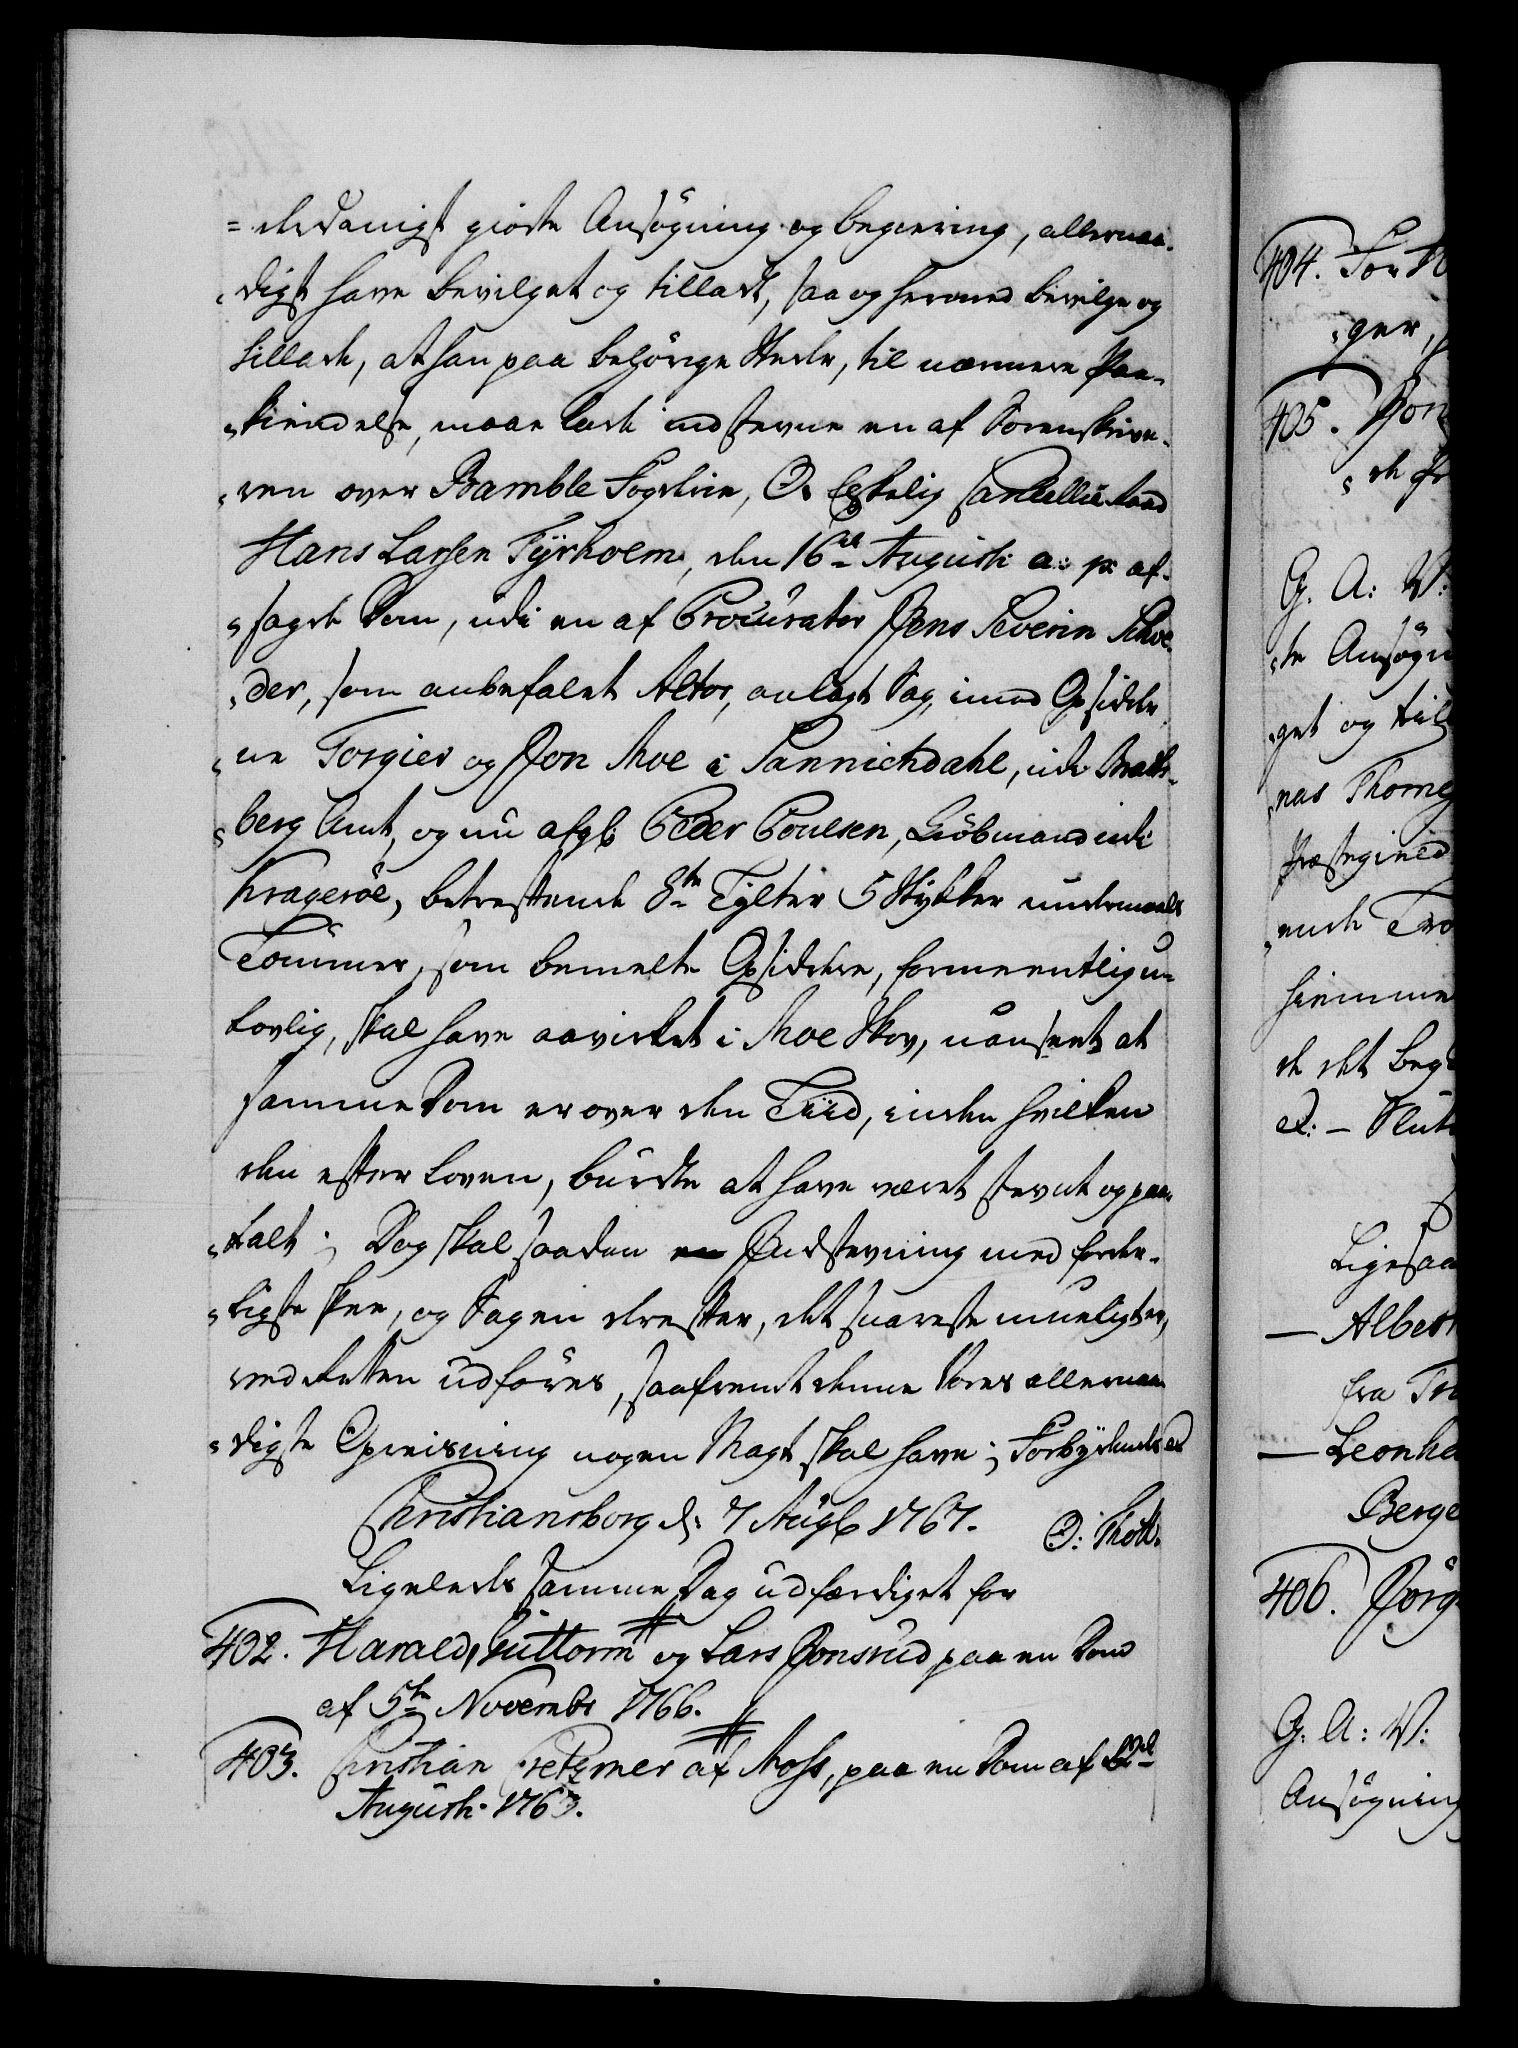 =derdanigst giorte Ansøgning og begiering, allernaa-
digst have bevilget og tilladt, saa og hermed bevilge og
tillade, at han paa behørige Stæder, til nærmere Paa-
kiendelse, maae lade indstevne en af Sorenskrive-
ren over Bamble Fogderie, Os Elskelig Cancellieraad
Hans Larsen Fyrholm, den 16de Augusti a: p: af-
sagde Dom, udi en af Procurator Jens Severin Schrø-
der, som anbefalet Actor, anlagt Sag, imod Opsidder-
ne Torgier og Jon Moe i Sannichdahl, udi Brats-
berg Amt, og nu afg: Peder Poulsen, Kiøbmand udi
Kragerøe, betreffende 8te Tylter 5 Stykker undermaals
Tømmer, som bemelte Opsiddere, formeentlig u-
lovlig, skal have avirket i Moe Skov, uanseet at
samme Dom er over den Tiid, inden hvilken
den efter Loven, burdte at have været stevnt og paa-
talt; Dog skal saadan Indstevning med forder-
ligste skee, og Sagen derefter, det snareste mueligt er,
ved Retten udføres, saafremt denne Vores allernaa-
digste Opreisning nogen Magt skal have; Forbydendes
Christiansborg d: 7 Aug: 1767. O: Thott.
Ligeleeds samme Dag udfærdiget for
402. Harald, Guttorm og Lars Jonsrud paa en Dom
af 5te Novembr 1766.
403. Christian Cretzmer af Moss, paa en Dom af
Augusti 1763.
404. For
ger,
405. Jon
de
G. A: V:
te Ansøgn
get og til
nas Thome
Præstegield
ende Tro
hiemme
de det beg
et: - Slut
Ligesaa
- Albert
fra Tr
- Leonha
Berge
406. Jørg
G. A: V:
Ansøgning